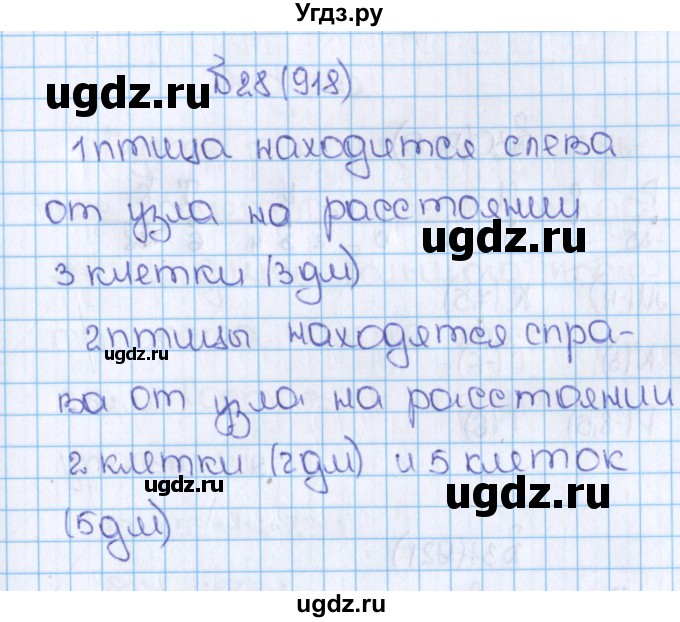 Угдз.ру
В28 (918)
ugdz.ru
1 птица находится слева
от узла на расстоянии
ugdz.ru
3 клетки (3 дм)
2 птицы находятся спра-
ugdz.ru
ва от узла на расстоянии
2 клетки (2 дм) и 5 клеток
ugdz.ru
ugdz.ru
(5 дм)
ugdz.ru